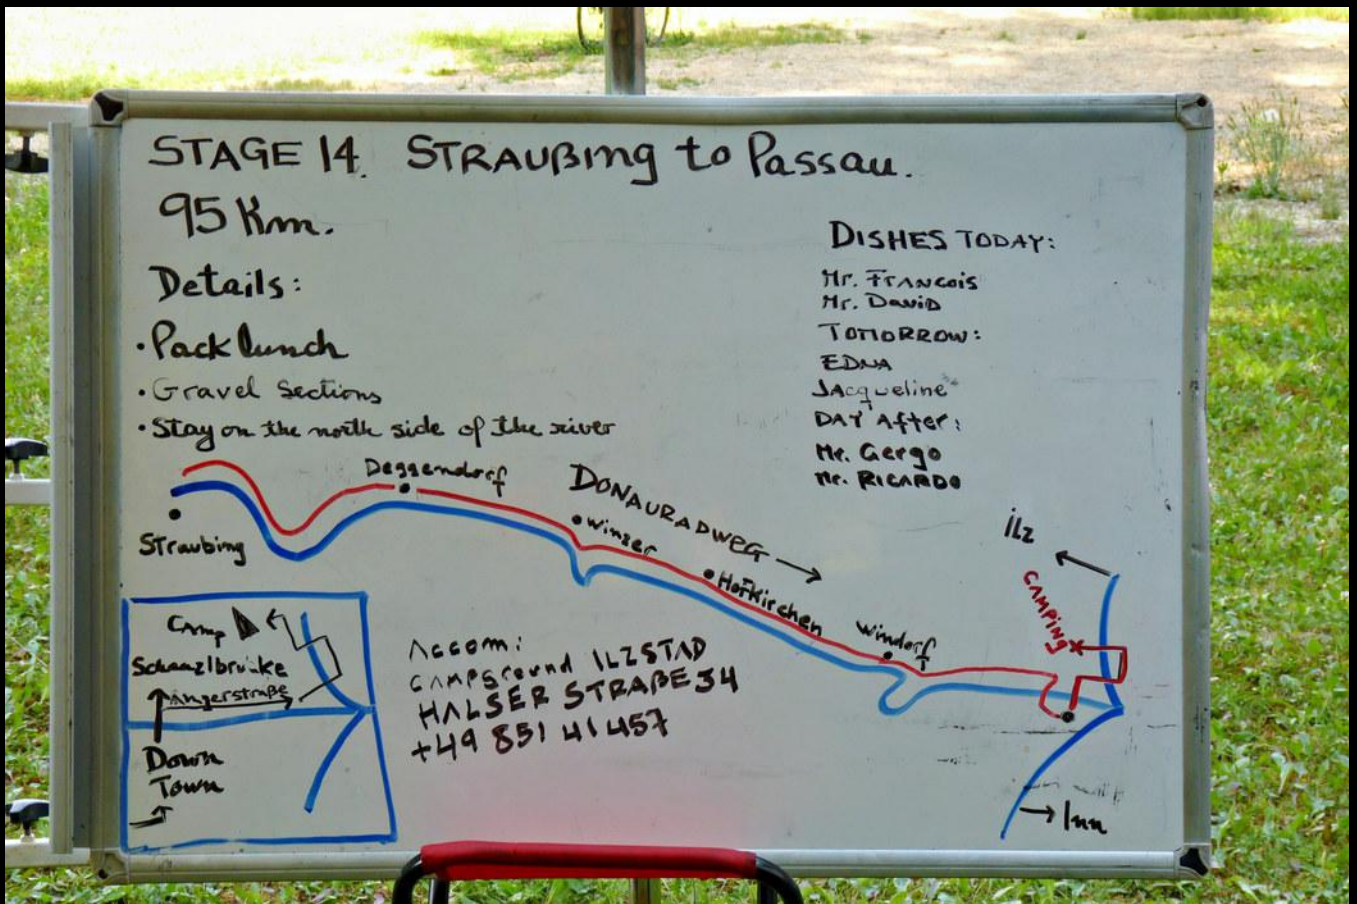 STAGE 14. STRAUßing to Passau.
95 Km.
Details:
• Pack lunch
• Gravel Sections
• Stay on the north side of the river
DISHES TODAY:
Mr. FRANCOIS
Mr. David
TOMORROW:
EDNA
JAcqueline
DAY After:
Mr. Gergo
Mr. RICARDO
Straubing
Deggendorf
DONAURADWEG
Winzer
Hofkirchen
Windorf
ILZ
CAMPING
Inn
Camp
Schanzlbrucke
Angerstraße
Down
Town
Accom:
CAMPGround ILZSTAD
HALSER STRAßE 34
+49 851 41457